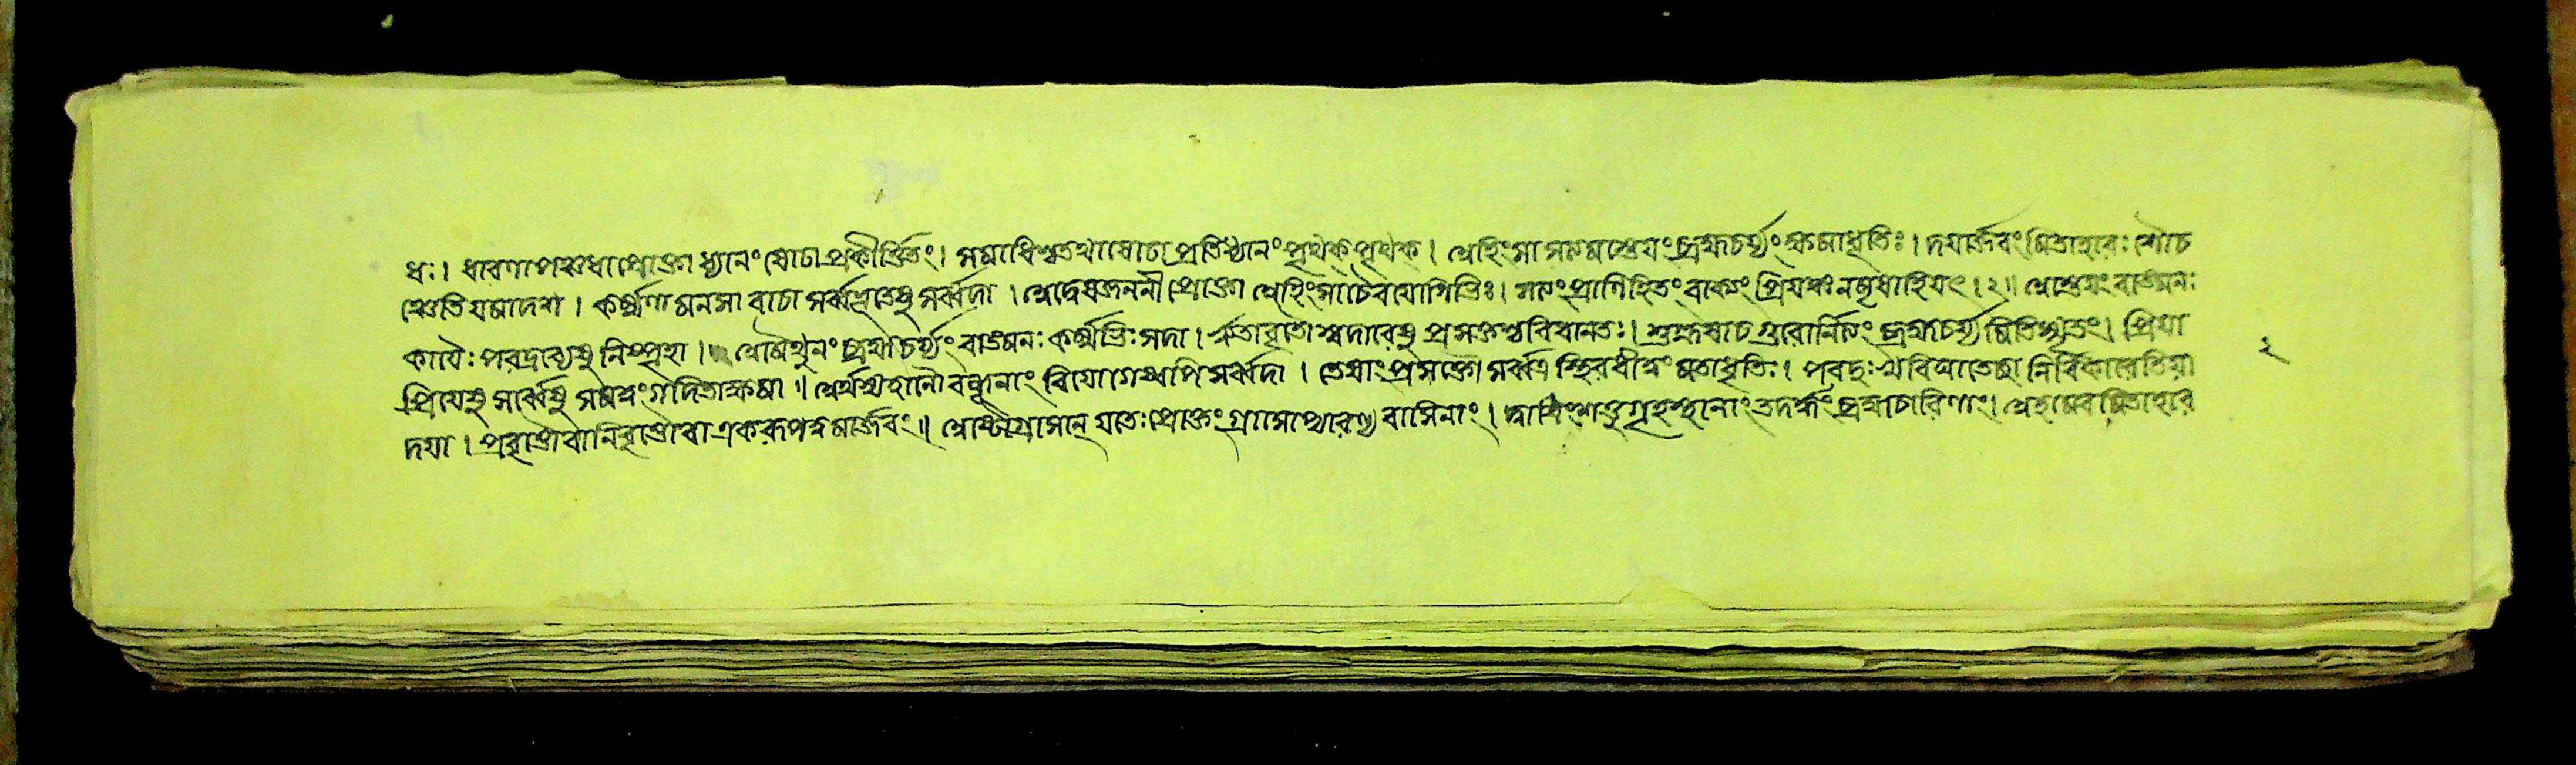 ধঃ। ধারণা পঞ্চধা প্রোক্তা ধ্যানং ষোঢা প্রকীর্ত্তিতং। সমাধিশ্চ তথা ষোঢা প্রতিধ্যানং পৃথক পৃথক। অহিংসা সত্যমস্তেয়ং ব্রহ্মচর্য্যং ক্ষমাধৃতিঃ। দযার্জ্জবং মিতাহারঃ শৌচ
ঞ্চেতি যমা দশ। কর্ম্মণা মনসা বাচা সর্ব্বভূতেষু সর্ব্বদা। অদ্বেষজননী প্রোক্তা অহিংসা চৈব যোগিভিঃ। সত্যং প্রাণিহিতং বাক্যং প্রিযঞ্চ ন মৃষা হি যৎ।২॥ অস্তেয়ং বাঙমনঃ
কাযৈঃ পরদ্রব্যেষু নিস্পৃহা। অমৈথুনং ব্রহ্মচর্য্যং বাঙমনঃ কর্ম্মভিঃ সদা। ঋতাবৃতৌ স্বদারেষু প্রসক্তশ্চ বিধানতঃ। শুশ্রূষা চ গুরোর্নিত্যং ব্রহ্মচর্য্যমিতি স্মৃতং। প্রিযা
প্রিযেষু সর্ব্বেষু সমত্বং গদিতা ক্ষমা॥ অর্থস্য হানৌ বন্ধূনাং বিযোগেষ্বপি সর্ব্বদা। তেষাং প্রসক্তৌ সর্ব্বত্র স্থিরধীত্বং মতা ধৃতিঃ। পরদুঃখবিঘাতেচ্ছা নির্বিকারেতি যা
দযা। প্রবৃত্তৌ বা নিবৃত্তৌ বা একরূপত্বমার্জ্জবং॥ অষ্টৌ গ্রাসান্ যতেঃ প্রোক্তং গ্রাসাশ্চারণ্যবাসিনাং। দ্বাত্রিংশত্তু গৃহস্থানাং তদর্দ্ধং ব্রহ্মচারিণাং। অহমেব মিতাহার
২